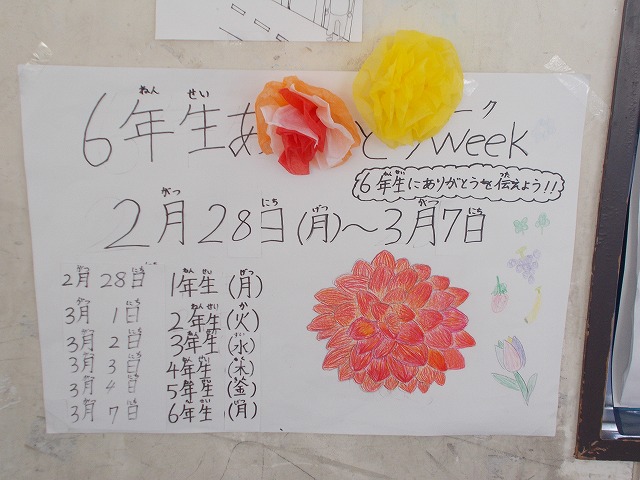 6年生あ とうweek
6年生にありがとうを伝えよう!!
2月28日(月)~3月7日
2月28日 1年生(月)
3月1日 2年生(火)
3月2日 3年生(水)
3月3日 4年生(木)
3月4日 5年生(金)
3月7日 6年生(月)